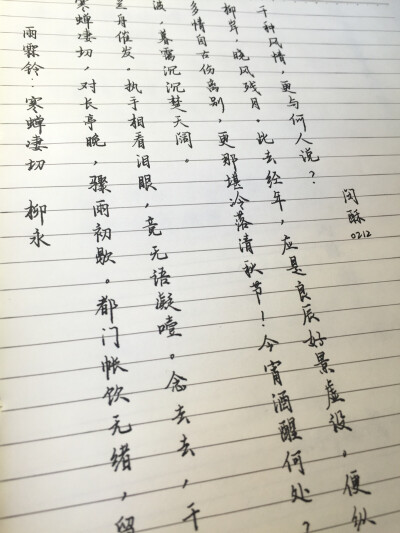 雨霖铃·寒蝉凄切 柳永
寒蝉凄切，对长亭晚，骤雨初歇。都门帐饮无绪，留
兰舟催发。执手相看泪眼，竟无语凝噎。念去去，千
波，暮霭沉沉楚天阔。
多情自古伤离别，更那堪冷落清秋节！今宵酒醒何处？
柳岸，晓风残月。此去经年，应是良辰好景虚设。便纵
千种风情，更与何人说？
酥
0212